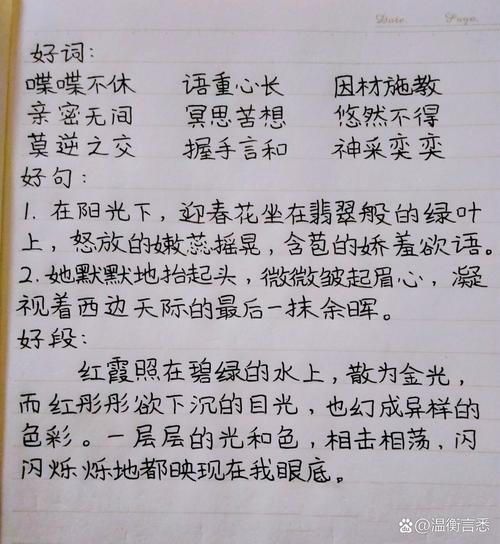 Date.    Page.
好词：
喋喋不休    语重心长    因材施教
亲密无间    冥思苦想    悠然不得
莫逆之交    握手言和    神采奕奕
好句：
1. 在阳光下，迎春花坐在翡翠般的绿叶
上，怒放的嫩蕊摇晃，含苞的娇羞欲语。
2. 她默默地抬起头，微微皱起眉心，凝
视着西边天际的最后一抹余晖。
好段：
红霞照在碧绿的水上，散为金光，
而红彤彤欲下沉的目光，也幻成异样的
色彩。一层层的光和色，相击相荡，闪
闪烁烁地都映现在我眼底。
@温衡言悉